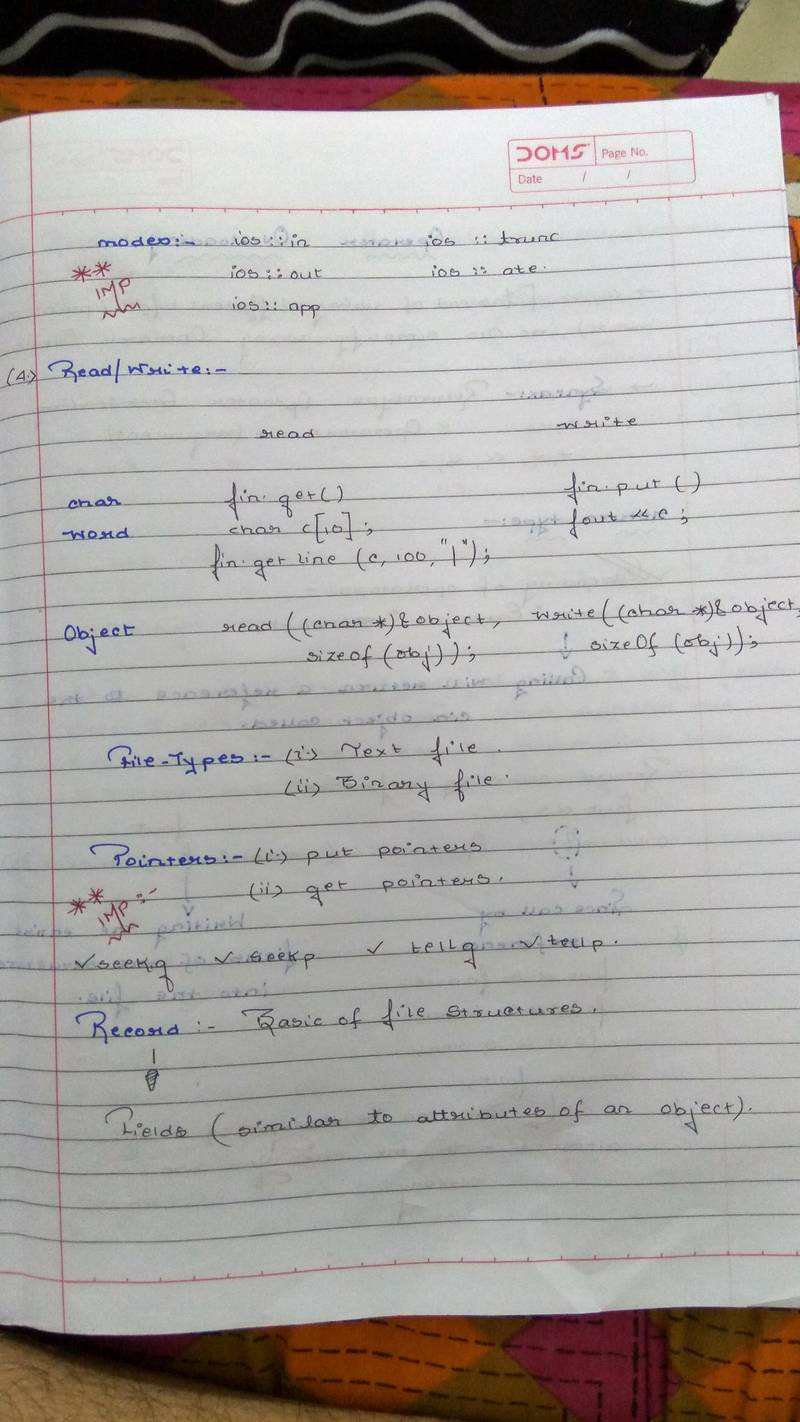 DOMS Page No.
Date / /
modes:- ios::in ios :: trunc
** ios::out ios :: ate.
IMP ios:: app
(4.) Read/Write:-
read write
char fin.get() fin.put ()
word char c[10]; fout << c;
fin.getline (c, 100, "|");
Object read ((char *)&object, write((char *)&object,
sizeof (obj)); sizeOf (obj));
File-Types:- (i.) Text file.
(ii) Binary file.
Pointers:- (i.) put pointers
** IMP:- (ii) get pointers.
✓seekg ✓seekp ✓ tellg ✓tellp.
Record :- Basic of file structures.
Fields (similar to attributes of an object).